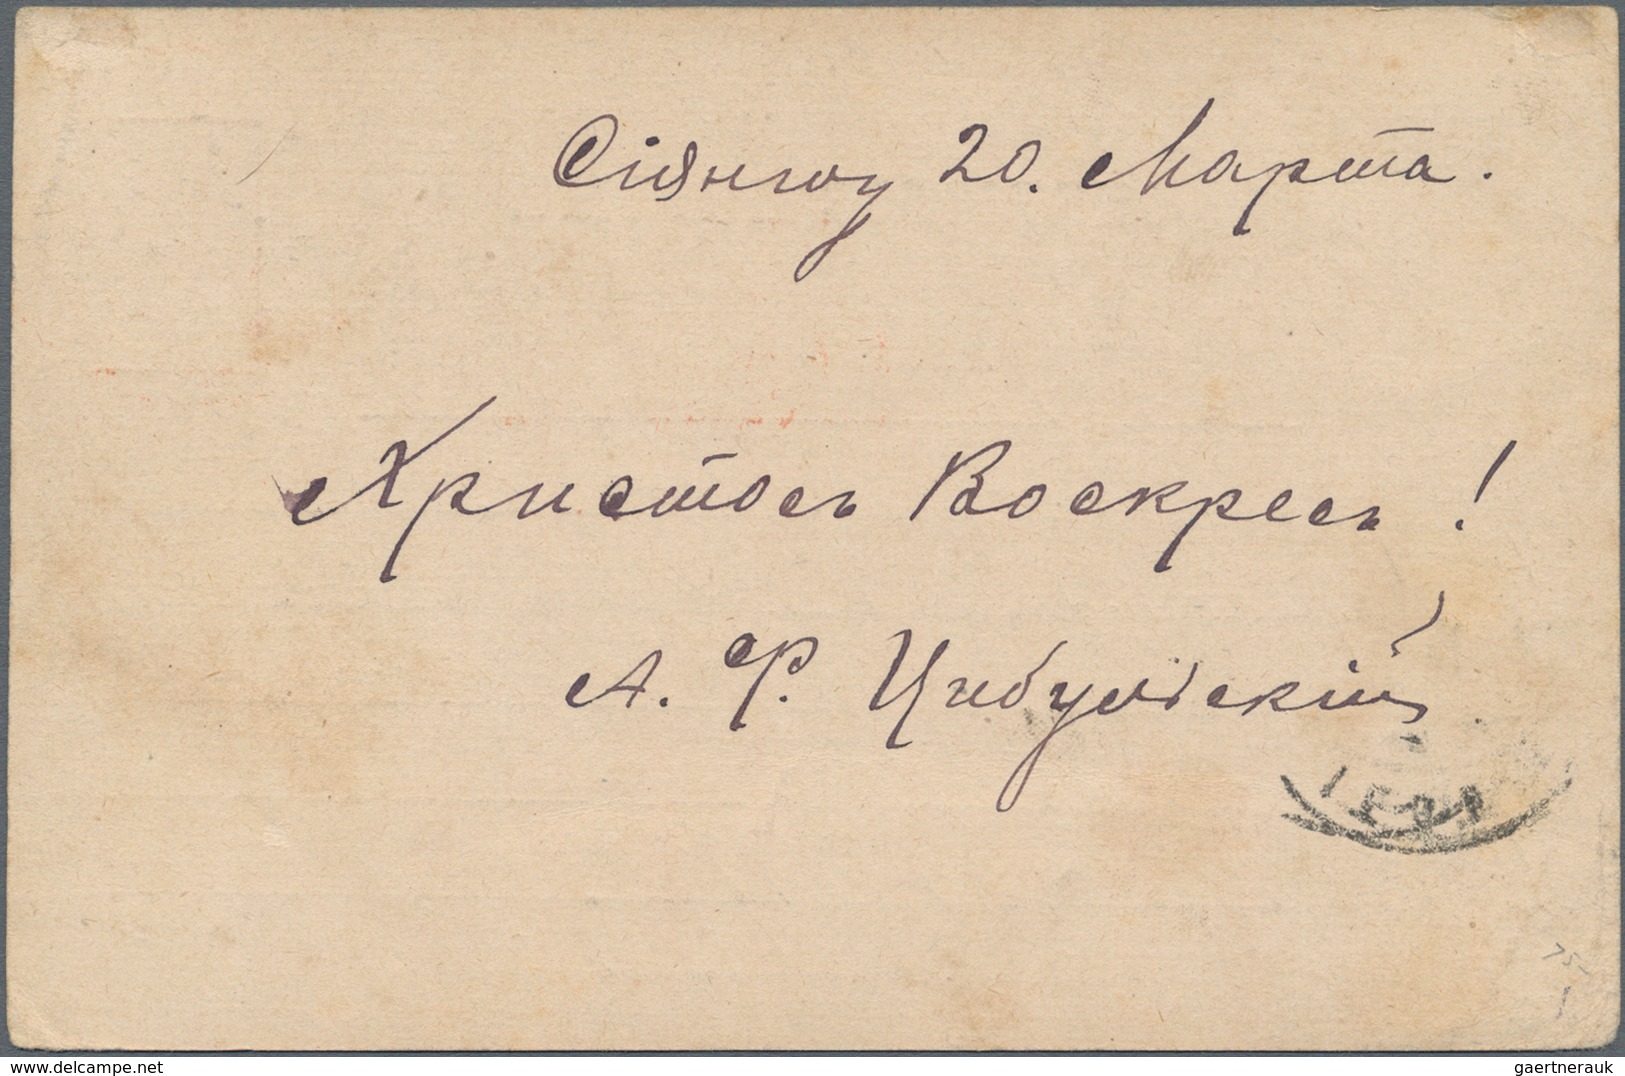 Сіянгоу 20. Марта.
Христосъ Воскресъ!
А. Ф. Цибульскій
75-
delcampe.net
gaertnerauk